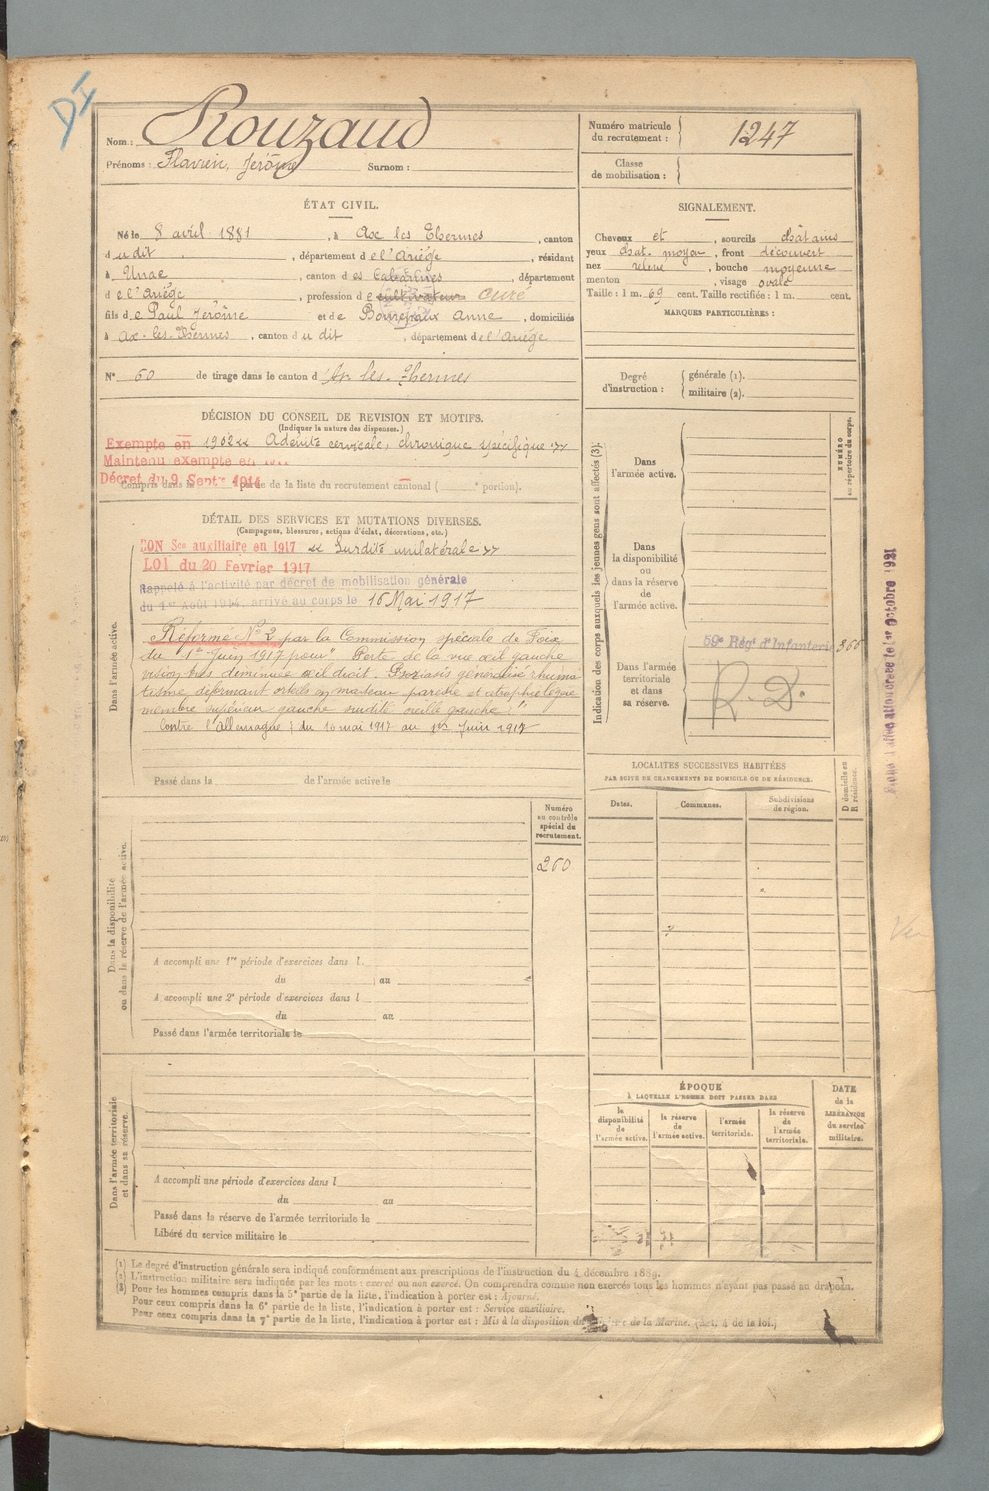 DI
Nom : Rouzaud
Prénoms : Flavien, Jérôme Surnom :
Numéro matricule du recrutement : 1247
Classe de mobilisation :
ÉTAT CIVIL.
Né le 8 avril 1881, à Ax les Thermes, canton
dudit, département de l'Ariége, résidant
à Unac, canton des Cabannes, département
de l'Ariége, profession de cultivateur curé
fils de Paul Jérôme et de Anne, domiciliés
à Ax-les-Thermes, canton dudit, département de l'Ariége
N° 60 de tirage dans le canton d'Ax les-Thermes
SIGNALEMENT.
Cheveux et, sourcils châtains
yeux chat. moyen, front découvert
nez relevé, bouche moyenne
menton, visage ovale
Taille : 1 m. 69 cent. Taille rectifiée : 1 m. cent.
MARQUES PARTICULIÈRES :
Degré d'instruction : générale (1).
militaire (2).
DÉCISION DU CONSEIL DE REVISION ET MOTIFS.
(Indiquer la nature des dispenses.)
Exempté en 1902 « Adénite cervicale, chronique spécifique »
Maintenu exempté en
Décret du 9 Septre 1914
Compris dans la partie de la liste du recrutement cantonal ( portion).
DÉTAIL DES SERVICES ET MUTATIONS DIVERSES.
(Campagnes, blessures, actions d'éclat, décorations, etc.)
Dans l'armée active.
BON Sce auxiliaire en 1917 « Surdité unilatérale »
LOI du 20 Fevrier 1917
Rappelé à l'activité par décret de mobilisation générale
du 1er Août 1914, arrivé au corps le 16 Mai 1917
Réformé N° 2 par la Commission spéciale de Foix
du 1er Juin 1917 pour "Perte de la vue œil gauche
vision très diminuée œil droit. Psoriasis généralisé rhuma
tisme déformant orteils en marteau parésie et atrophie légère
membre supérieur gauche surdité oreille gauche."
Contre l'Allemagne : du 16 mai 1917 au 1er Juin 1917
Passé dans la de l'armée active le
Indication des corps auxquels les jeunes gens sont affectés (3).
NUMÉRO au répertoire du corps.
Dans l'armée active.
Dans la disponibilité ou dans la réserve de l'armée active.
Dans l'armée territoriale et dans sa réserve.
59e Régt d'Infanterie 366
R. D.
1er Octobre 1921
LOCALITÉS SUCCESSIVES HABITÉES
PAR SUITE DE CHANGEMENTS DE DOMICILE OU DE RÉSIDENCE.
Dates. Communes. Subdivisions de région. D domicile ou R résidence.
Numéro au contrôle spécial du recrutement.
260
Dans la disponibilité ou dans la réserve de l'armée active.
A accompli une 1re période d'exercices dans l
du au
A accompli une 2e période d'exercices dans l
du au
Passé dans l'armée territoriale le
Dans l'armée territoriale et dans sa réserve.
A accompli une période d'exercices dans l
du au
Passé dans la réserve de l'armée territoriale le
Libéré du service militaire le
ÉPOQUE
À LAQUELLE L'HOMME DOIT PASSER DANS
la disponibilité de l'armée active.
la réserve de l'armée active.
l'armée territoriale.
la réserve de l'armée territoriale.
DATE de la LIBÉRATION du service militaire.
(1) Le degré d'instruction générale sera indiqué conformément aux prescriptions de l'instruction du 4 décembre 1889.
(2) L'instruction militaire sera indiquée par les mots : exercé ou non exercé. On comprendra comme non exercés tous les hommes n'ayant pas passé au drapeau.
(3) Pour les hommes compris dans la 5e partie de la liste, l'indication à porter est : Ajourné.
Pour ceux compris dans la 6e partie de la liste, l'indication à porter est : Service auxiliaire.
Pour ceux compris dans la 7e partie de la liste, l'indication à porter est : Mis à la disposition du Ministre de la Marine. (Art. 4 de la loi.)